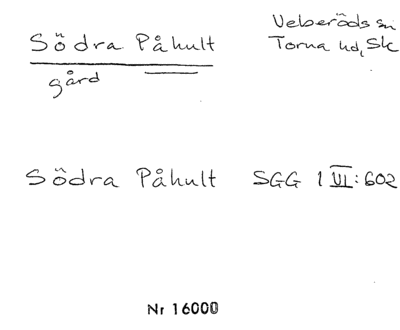 Södra Påhult
gård
Veberöds sn
Torna hd, Sk
Södra Påhult SGG 1 VI:602
Nr 16000